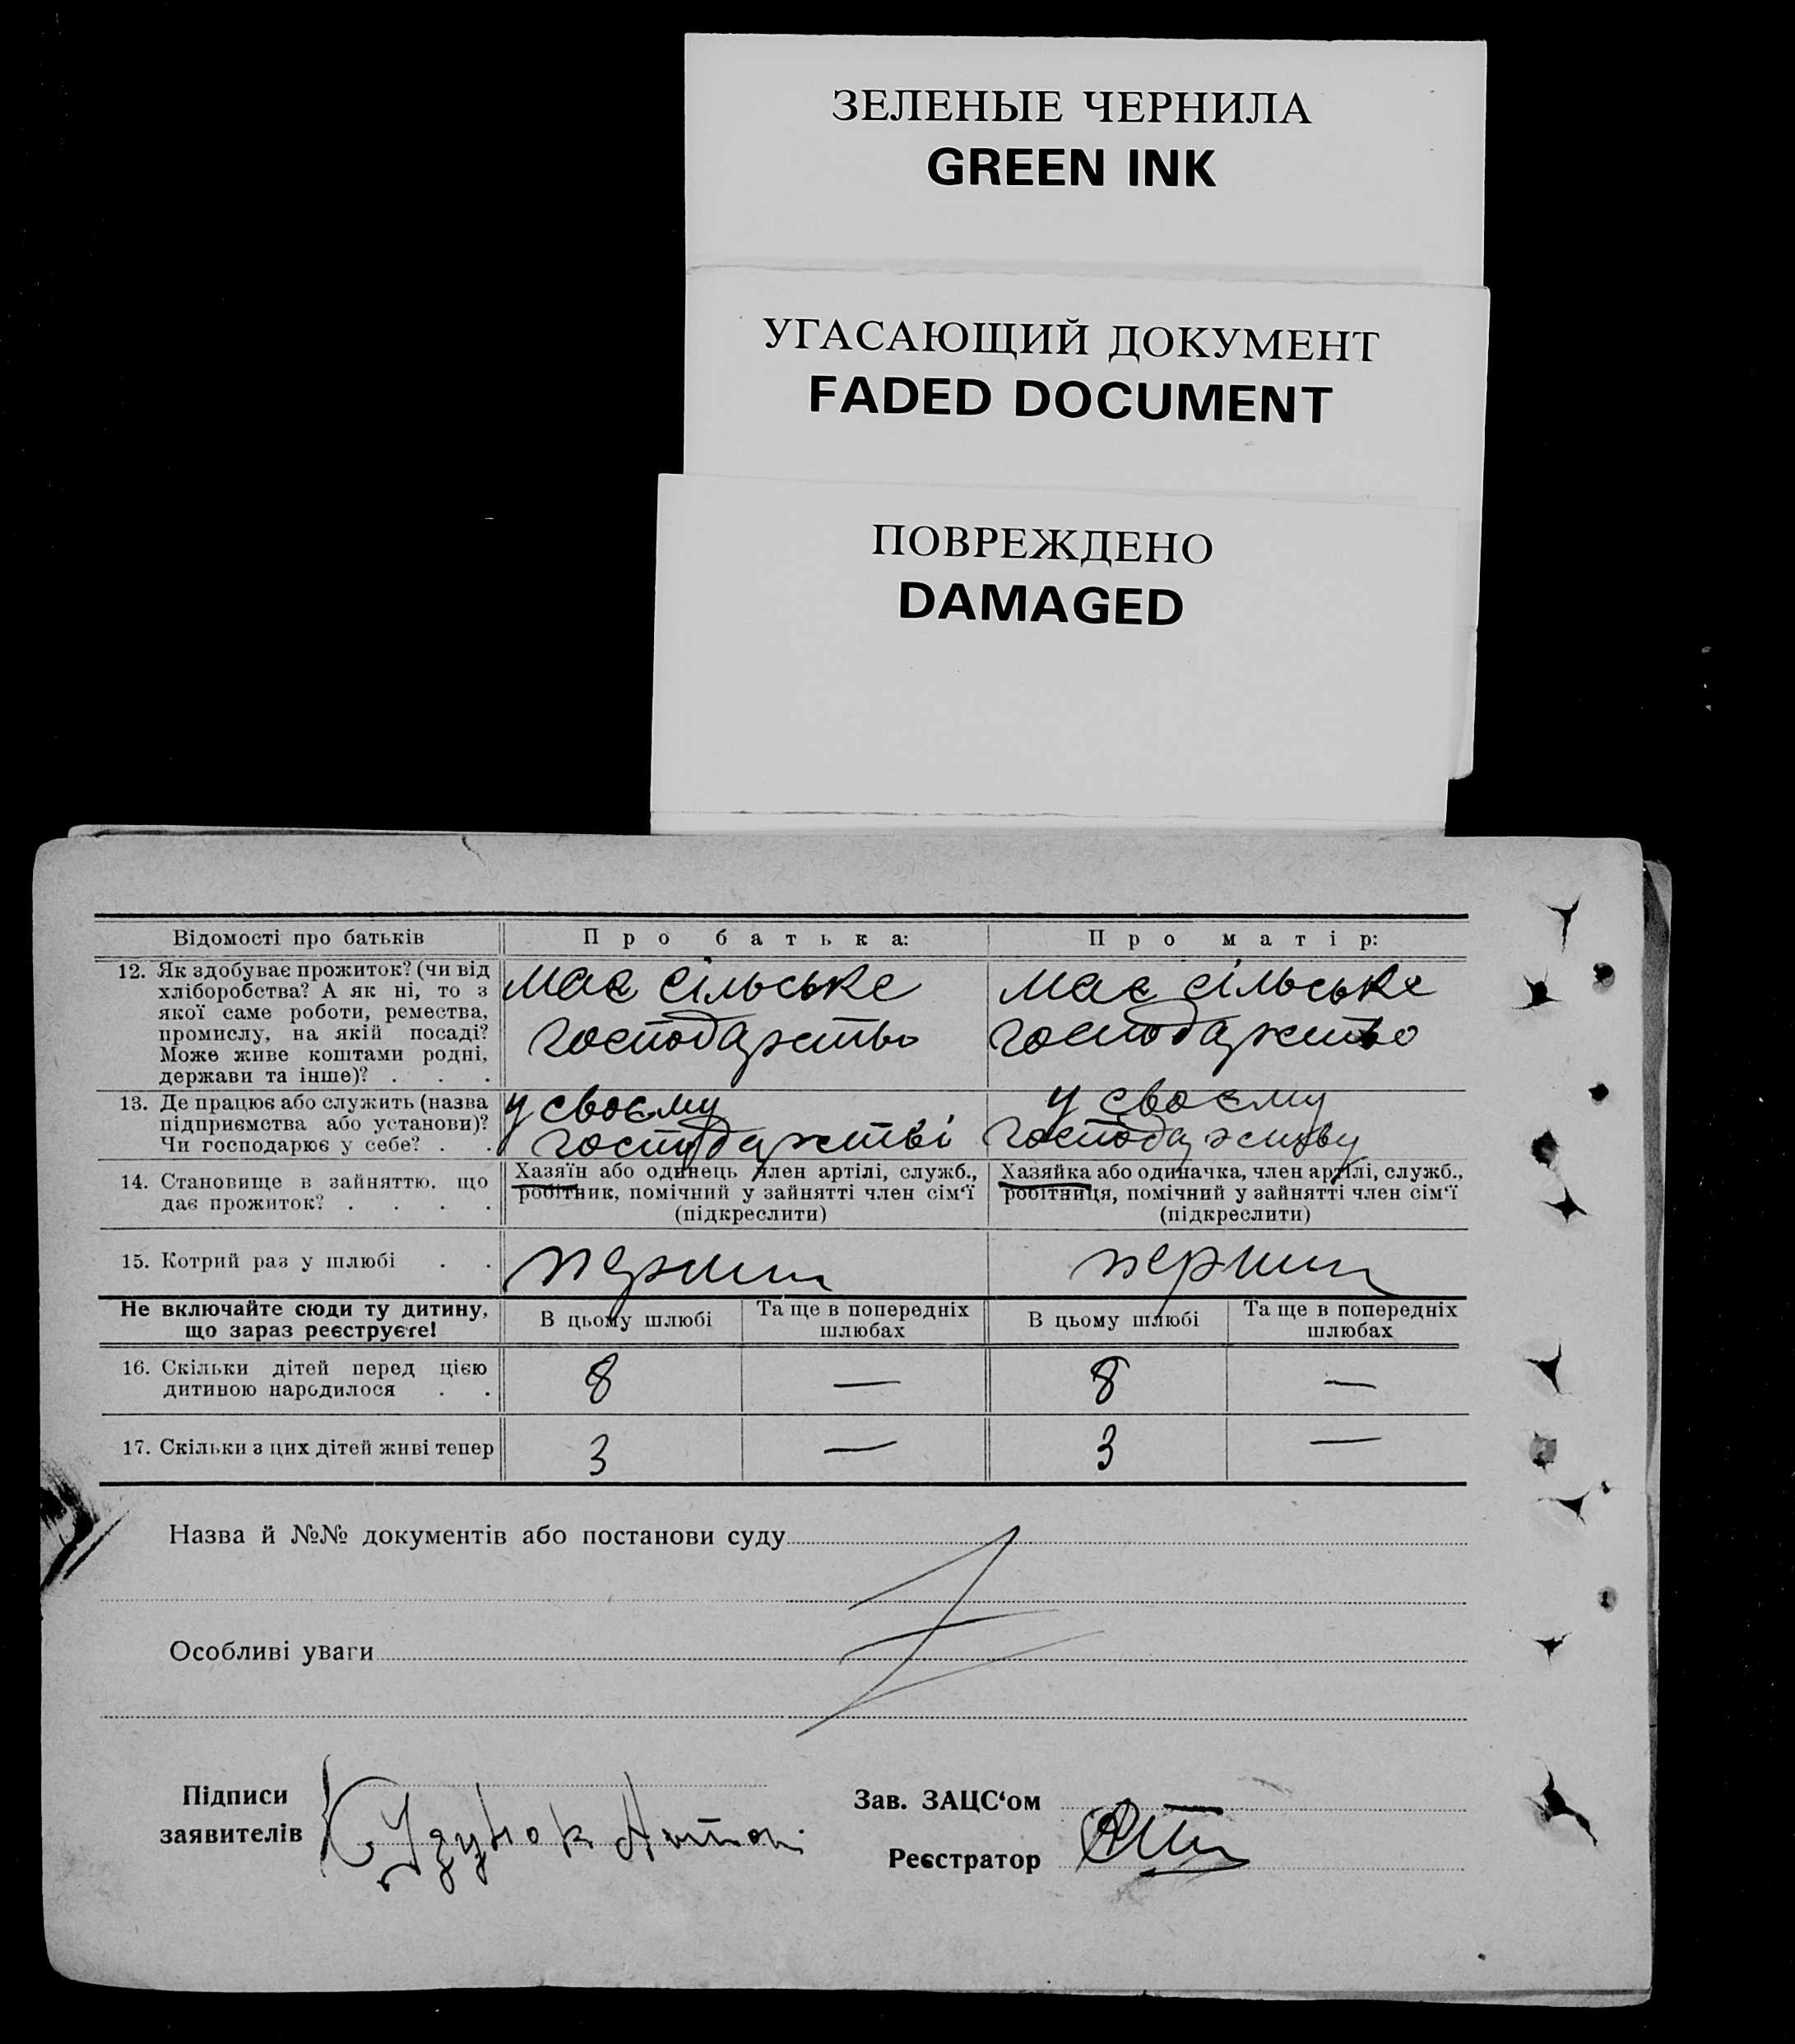 ЗЕЛЕНЫЕ ЧЕРНИЛА
GREEN INK
УГАСАЮЩИЙ ДОКУМЕНТ
FADED DOCUMENT
ПОВРЕЖДЕНО
DAMAGED
Відомості про батьків
Про батька:
Про матір:
12. Як здобуває прожиток? (чи від
хліборобства? А як ні, то з
якої саме роботи, ремества,
промислу, на якій посаді?
Може живе коштами родні,
держави та інше)? . . .
має сільське
господарство
має сільське
господарство
13. Де працює або служить (назва
підприємства або установи)?
Чи господарює у себе? . .
у своєму
господарстві
у своєму
господарству
14. Становище в зайняттю, що
дає прожиток? . . . .
Хазяїн або одинець член артілі, служб.,
робітник, помічний у зайнятті член сім‘ї
(підкреслити)
Хазяйка або одиначка, член артілі, служб.,
робітниця, помічний у зайнятті член сім‘ї
(підкреслити)
15. Котрий раз у шлюбі . .
перший
перший
Не включайте сюди ту дитину,
що зараз реєструєте!
В цьому шлюбі
Та ще в попередніх
шлюбах
В цьому шлюбі
Та ще в попередніх
шлюбах
16. Скільки дітей перед цією
дитиною народилося . .
8
—
8
—
17. Скільки з цих дітей живі тепер
3
—
3
—
Назва й №№ документів або постанови суду
Особливі уваги
Підписи
заявителів
Антон
Зав. ЗАЦС‘ом
Реєстратор